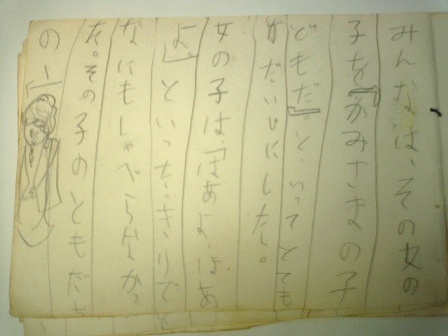 みんなは、その女の
子を「かみさまの子
どもだ」といってとても
だいじにした。
女の子は、「はあよ、はあ
よ。」といったきりで
なにもしゃべらなかっ
た。その子のともだち
の